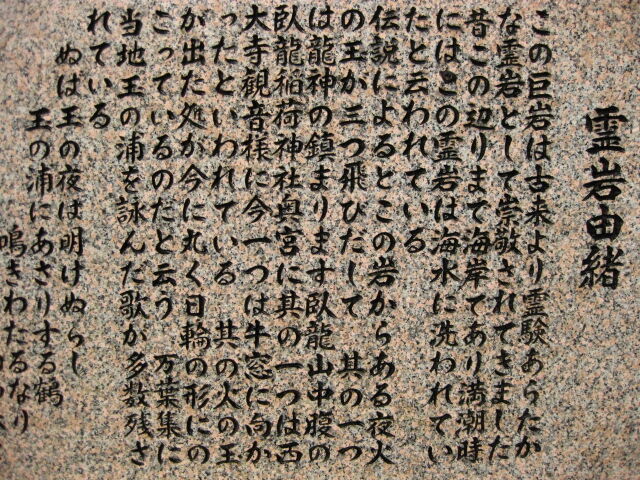 霊岩由緒
この巨岩は古来より霊験あらたか
な霊岩として崇敬されてきました
昔この辺りまで海岸であり満潮時
にはこの霊岩は海水に洗われてい
たと云われている
伝説によるとこの岩からある夜火
の玉が三つ飛びだして 其の一つ
は龍神の鎮まります臥龍山中腹の
臥龍稲荷神社奥宮に其の一つは西
大寺観音様に今一つは牛窓に向か
ったといわれている 其の火の玉
が出た処が今に丸く日輪の形にの
こっているのだと云う 万葉集に
当地玉の浦を詠んだ歌が多数残さ
れている
ぬば玉の夜は明けぬらし
玉の浦にあさりする鶴
鳴きわたるなり